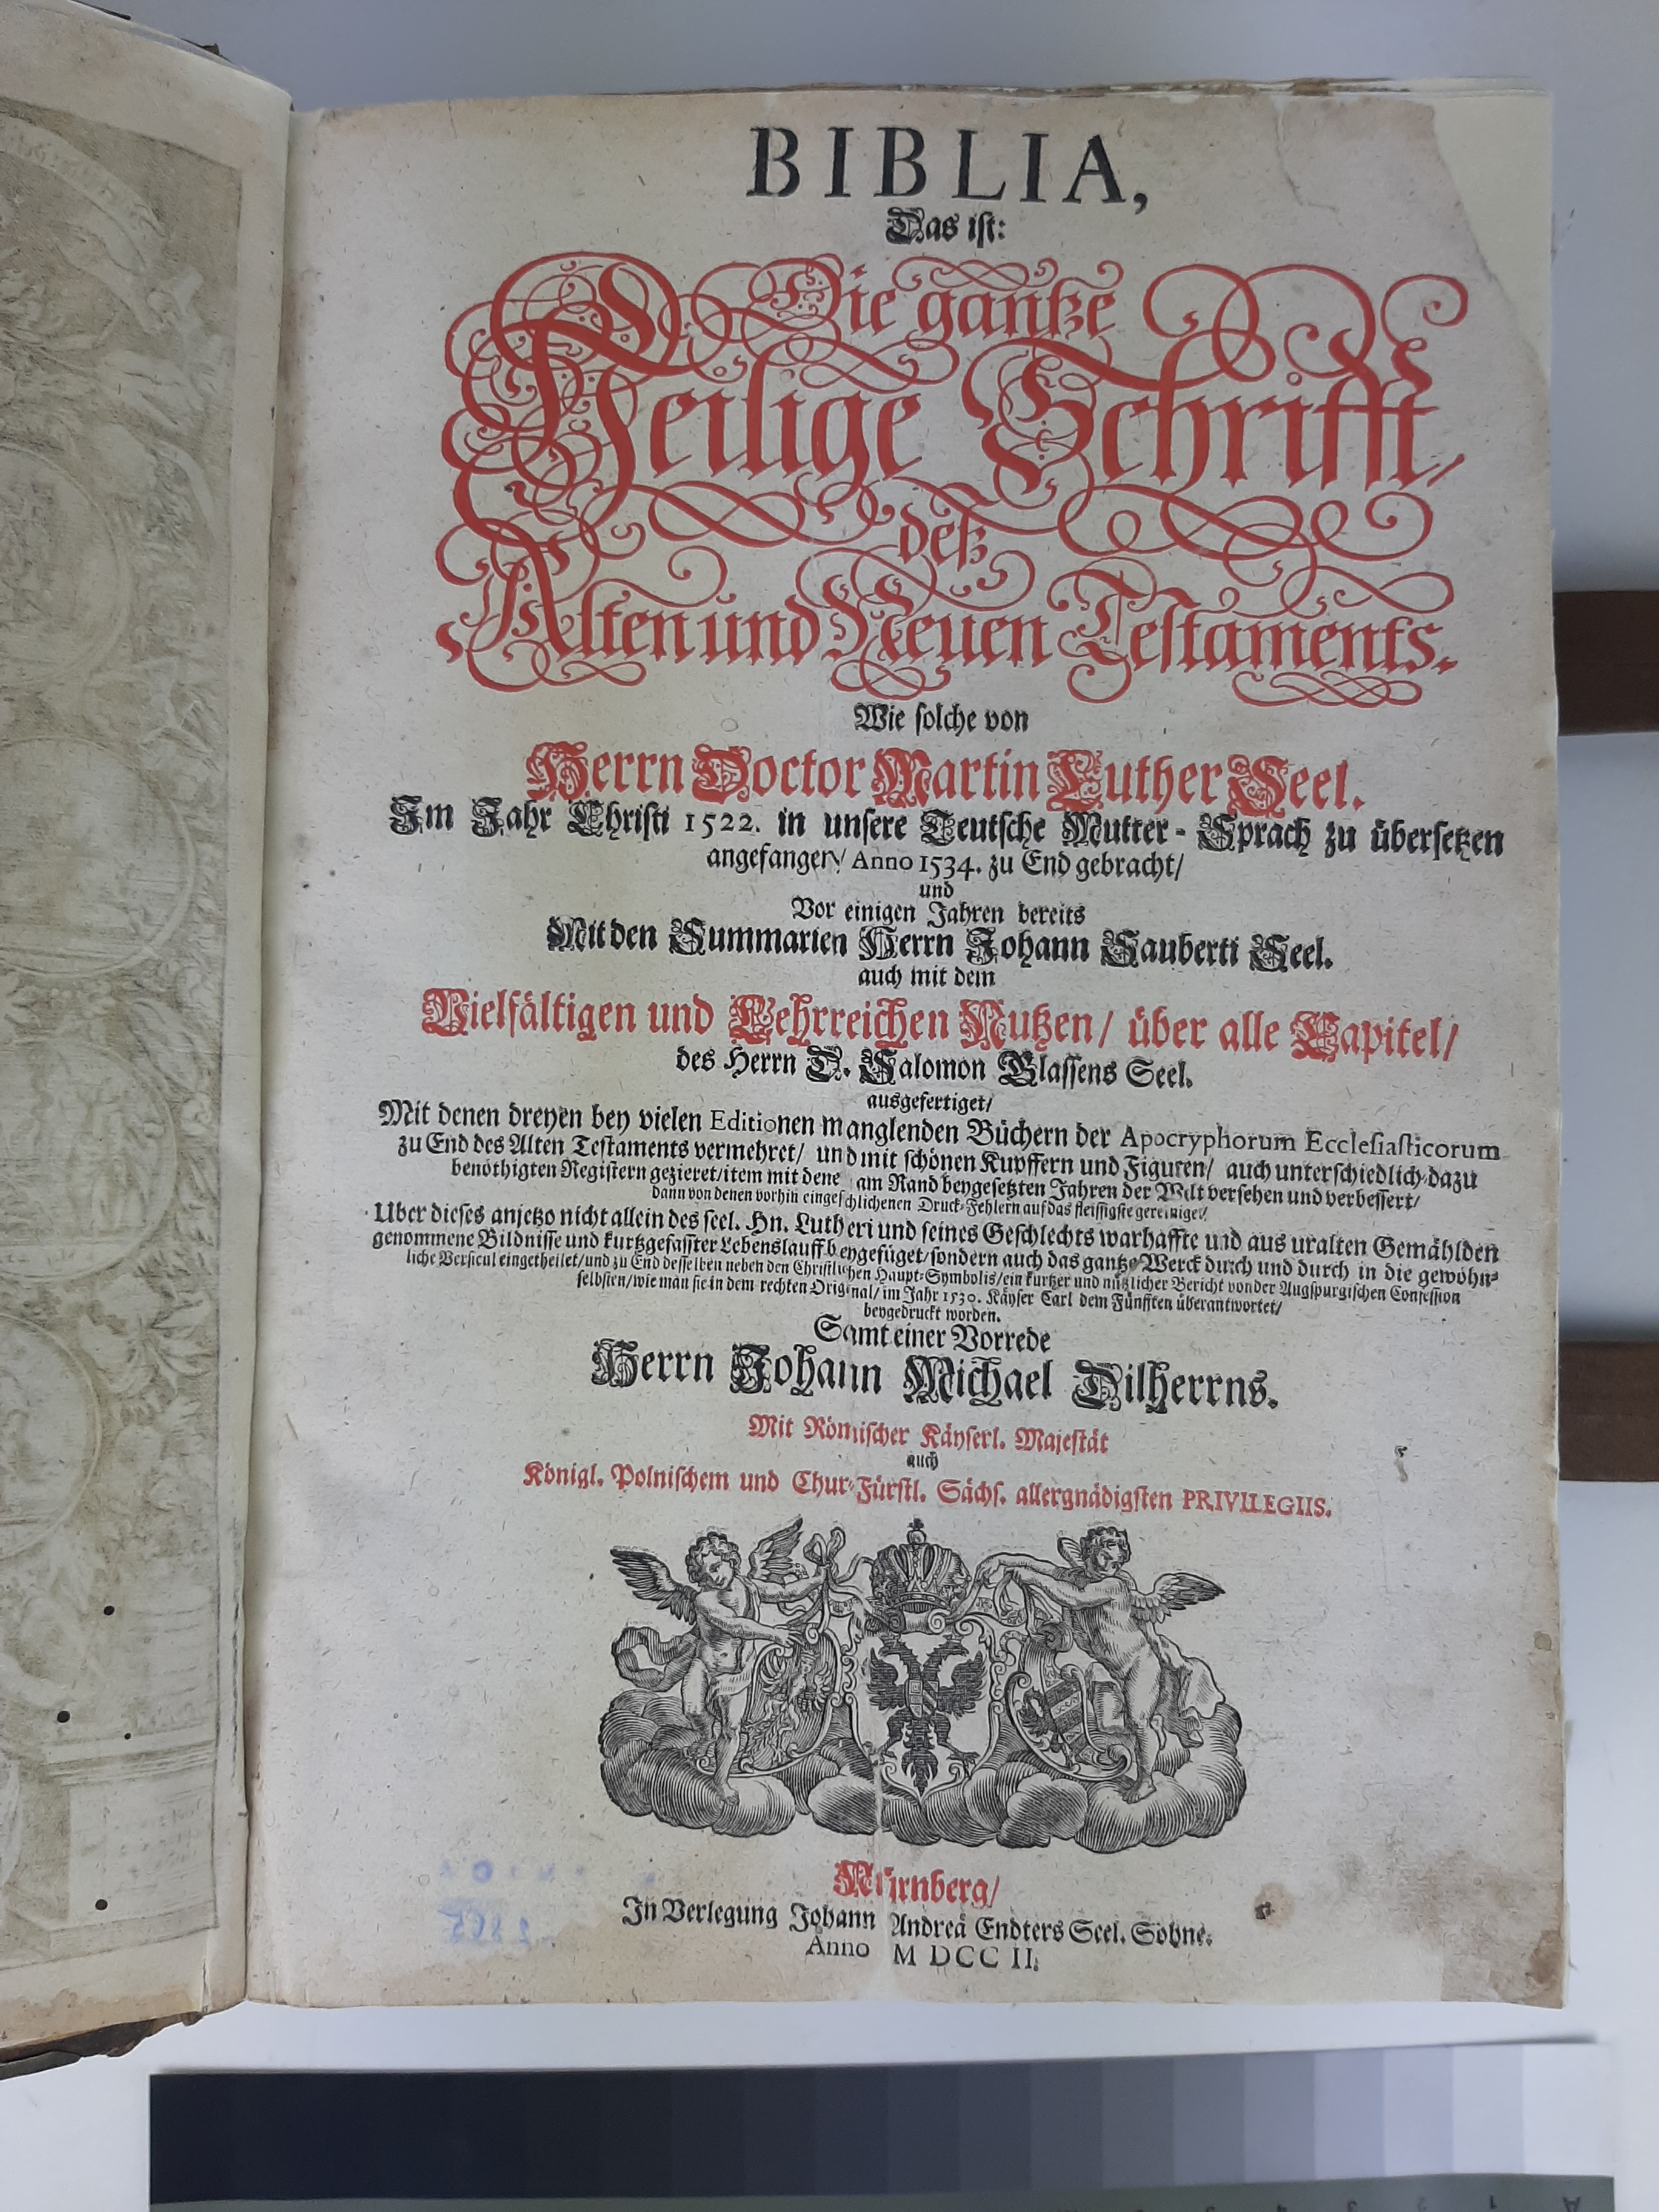 BIBLIA,
Das ist:
Die gantze
Heilige Schrifft/
deß
Alten und Neuen Testaments.
Wie solche von
Herrn Doctor Martin Luther Seel.
Im Jahr Christi 1522. in unsere Teutsche Mutter-Sprach zu übersetzen
angefangen/ Anno 1534. zu End gebracht/
und
Vor einigen Jahren bereits
Mit den Summarien Herrn Johann Sauberti Seel.
auch mit dem
Vielfältigen und Lehrreichen Nutzen/ über alle Capitel/
des Herrn D. Salomon Glassens Seel.
ausgefertiget/
Mit denen dreyen bey vielen Editionen manglenden Büchern der Apocryphorum Ecclesiasticorum
zu End des Alten Testaments vermehret/ und mit schönen Kupffern und Figuren/ auch unterschiedlich-dazu
benöthigten Registern gezieret/ item mit dene am Rand beygesetzten Jahren der Welt versehen und verbessert/
dann von denen vorhin eingeschlichenen Druck-Fehlern auf das fleissigste gereiniget/
Uber dieses anjetzo nicht allein des seel. Hn. Lutheri und seines Geschlechts warhaffte und aus uralten Gemählden
genommene Bildnisse und kurtzgefasster Lebenslauff beygefüget/ sondern auch das gantze Werck durch und durch in die gewöhn-
liche Versicul eingetheilet/ und zu End desselben neben den Christlichen Haupt-Symbolis/ ein kurtzer und nützlicher Bericht von der Augspurgischen Confession
selbsten/ wie man sie in dem rechten Original/ im Jahr 1530. Käyser Carl dem Fünfften überantwortet/
beygedruckt worden.
Samt einer Vorrede
Herrn Johann Michael Dilherrns.
Mit Römischer Käyserl. Majestät
auch
Königl. Polnischem und Chur-Fürstl. Sächs. allergnädigsten PRIVILEGIIS.
Nürnberg/
In Verlegung Johann Andreä Endters Seel. Söhne.
Anno M DCC II.